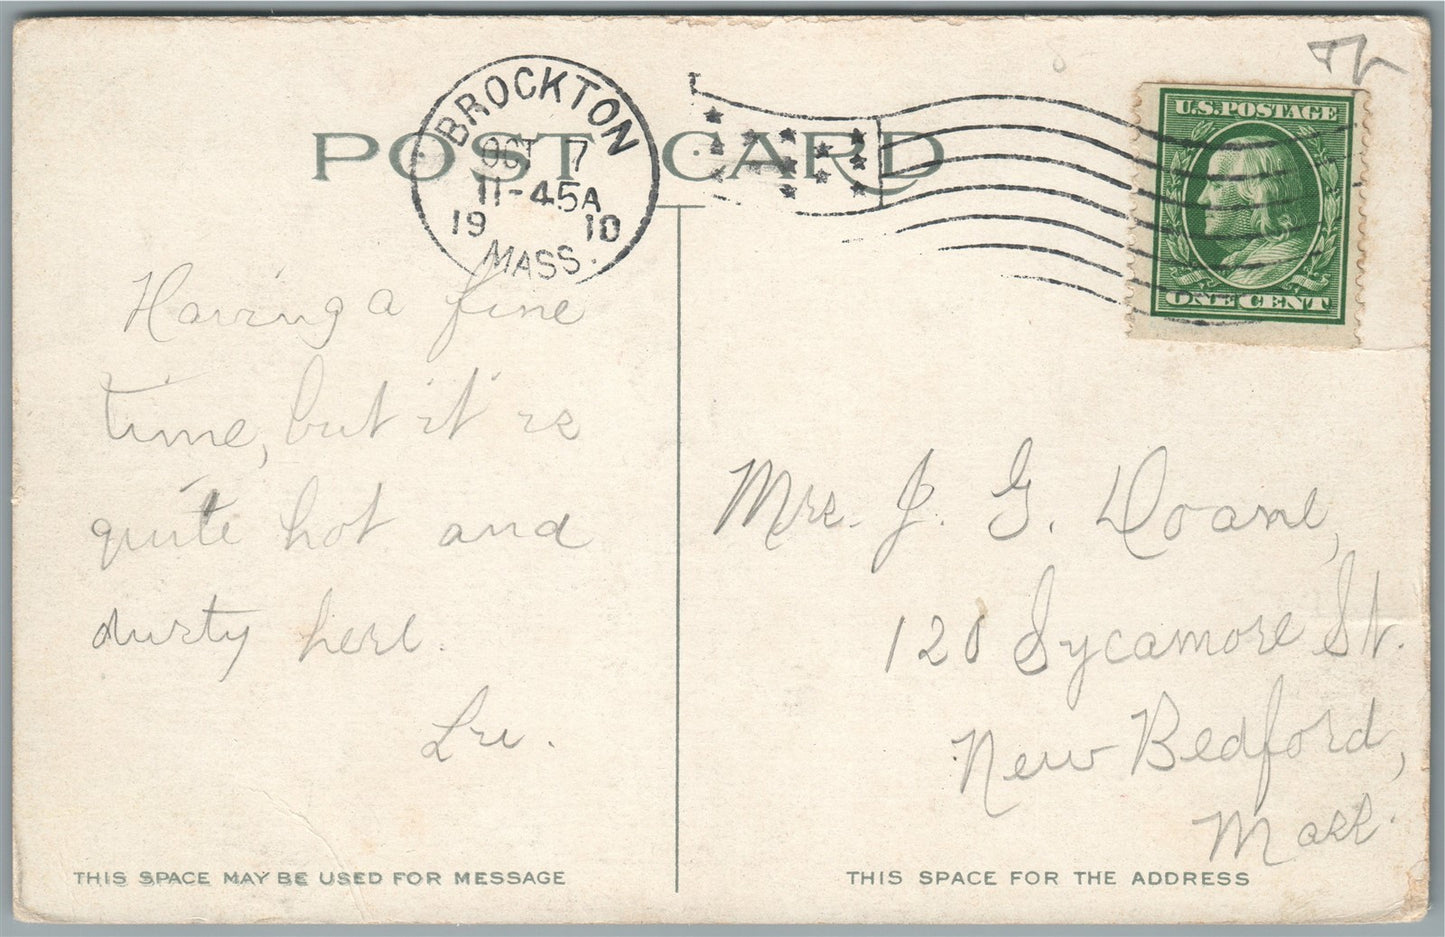 POST CARD
BROCKTON
OCT 7
11-45A
19 10
MASS.
U.S. POSTAGE
ONE CENT
Having a fine
time, but it is
quite hot and
dusty here.
Mrs. J. G. Doane,
120 Sycamore St.
New Bedford,
Mass.
THIS SPACE MAY BE USED FOR MESSAGE
THIS SPACE FOR THE ADDRESS